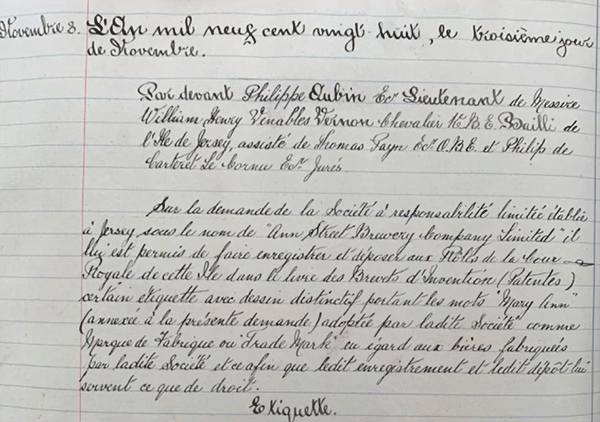 Novembre 3. L'An mil neuf cent vingt huit, le troisième jour
de Novembre.
Par devant Philippe Aubin Ecr Lieutenant de Messire
William Henry Venables Vernon Chevalier K.B.E. Bailli de
l'Ile de Jersey, assisté de Thomas Payn Ecr O.B.E. et Philip de
Carteret Le Cornu Ecr Jurés
Sur la demande de la Société à responsabilité limitée établie
à Jersey sous le nom de "Ann Street Brewery Company Limited" il
lui est permis de faire enregistrer et déposer aux Rôles de la Cour
Royale de cette Ile dans le livre des Brevets d'Invention (Patentes)
certain étiquette avec dessin distinctif portant les mots "Mary Ann"
(annexée à la présente demande) adoptée par ladite Société comme
Marque de Fabrique ou "Trade Mark" eu égard aux bières fabriquées
par ladite Société et ce afin que ledit enregistrement et ledit dépôt lui
servent ce que de droit.
Etiquette.